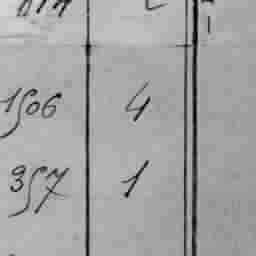 1506 4
357 1